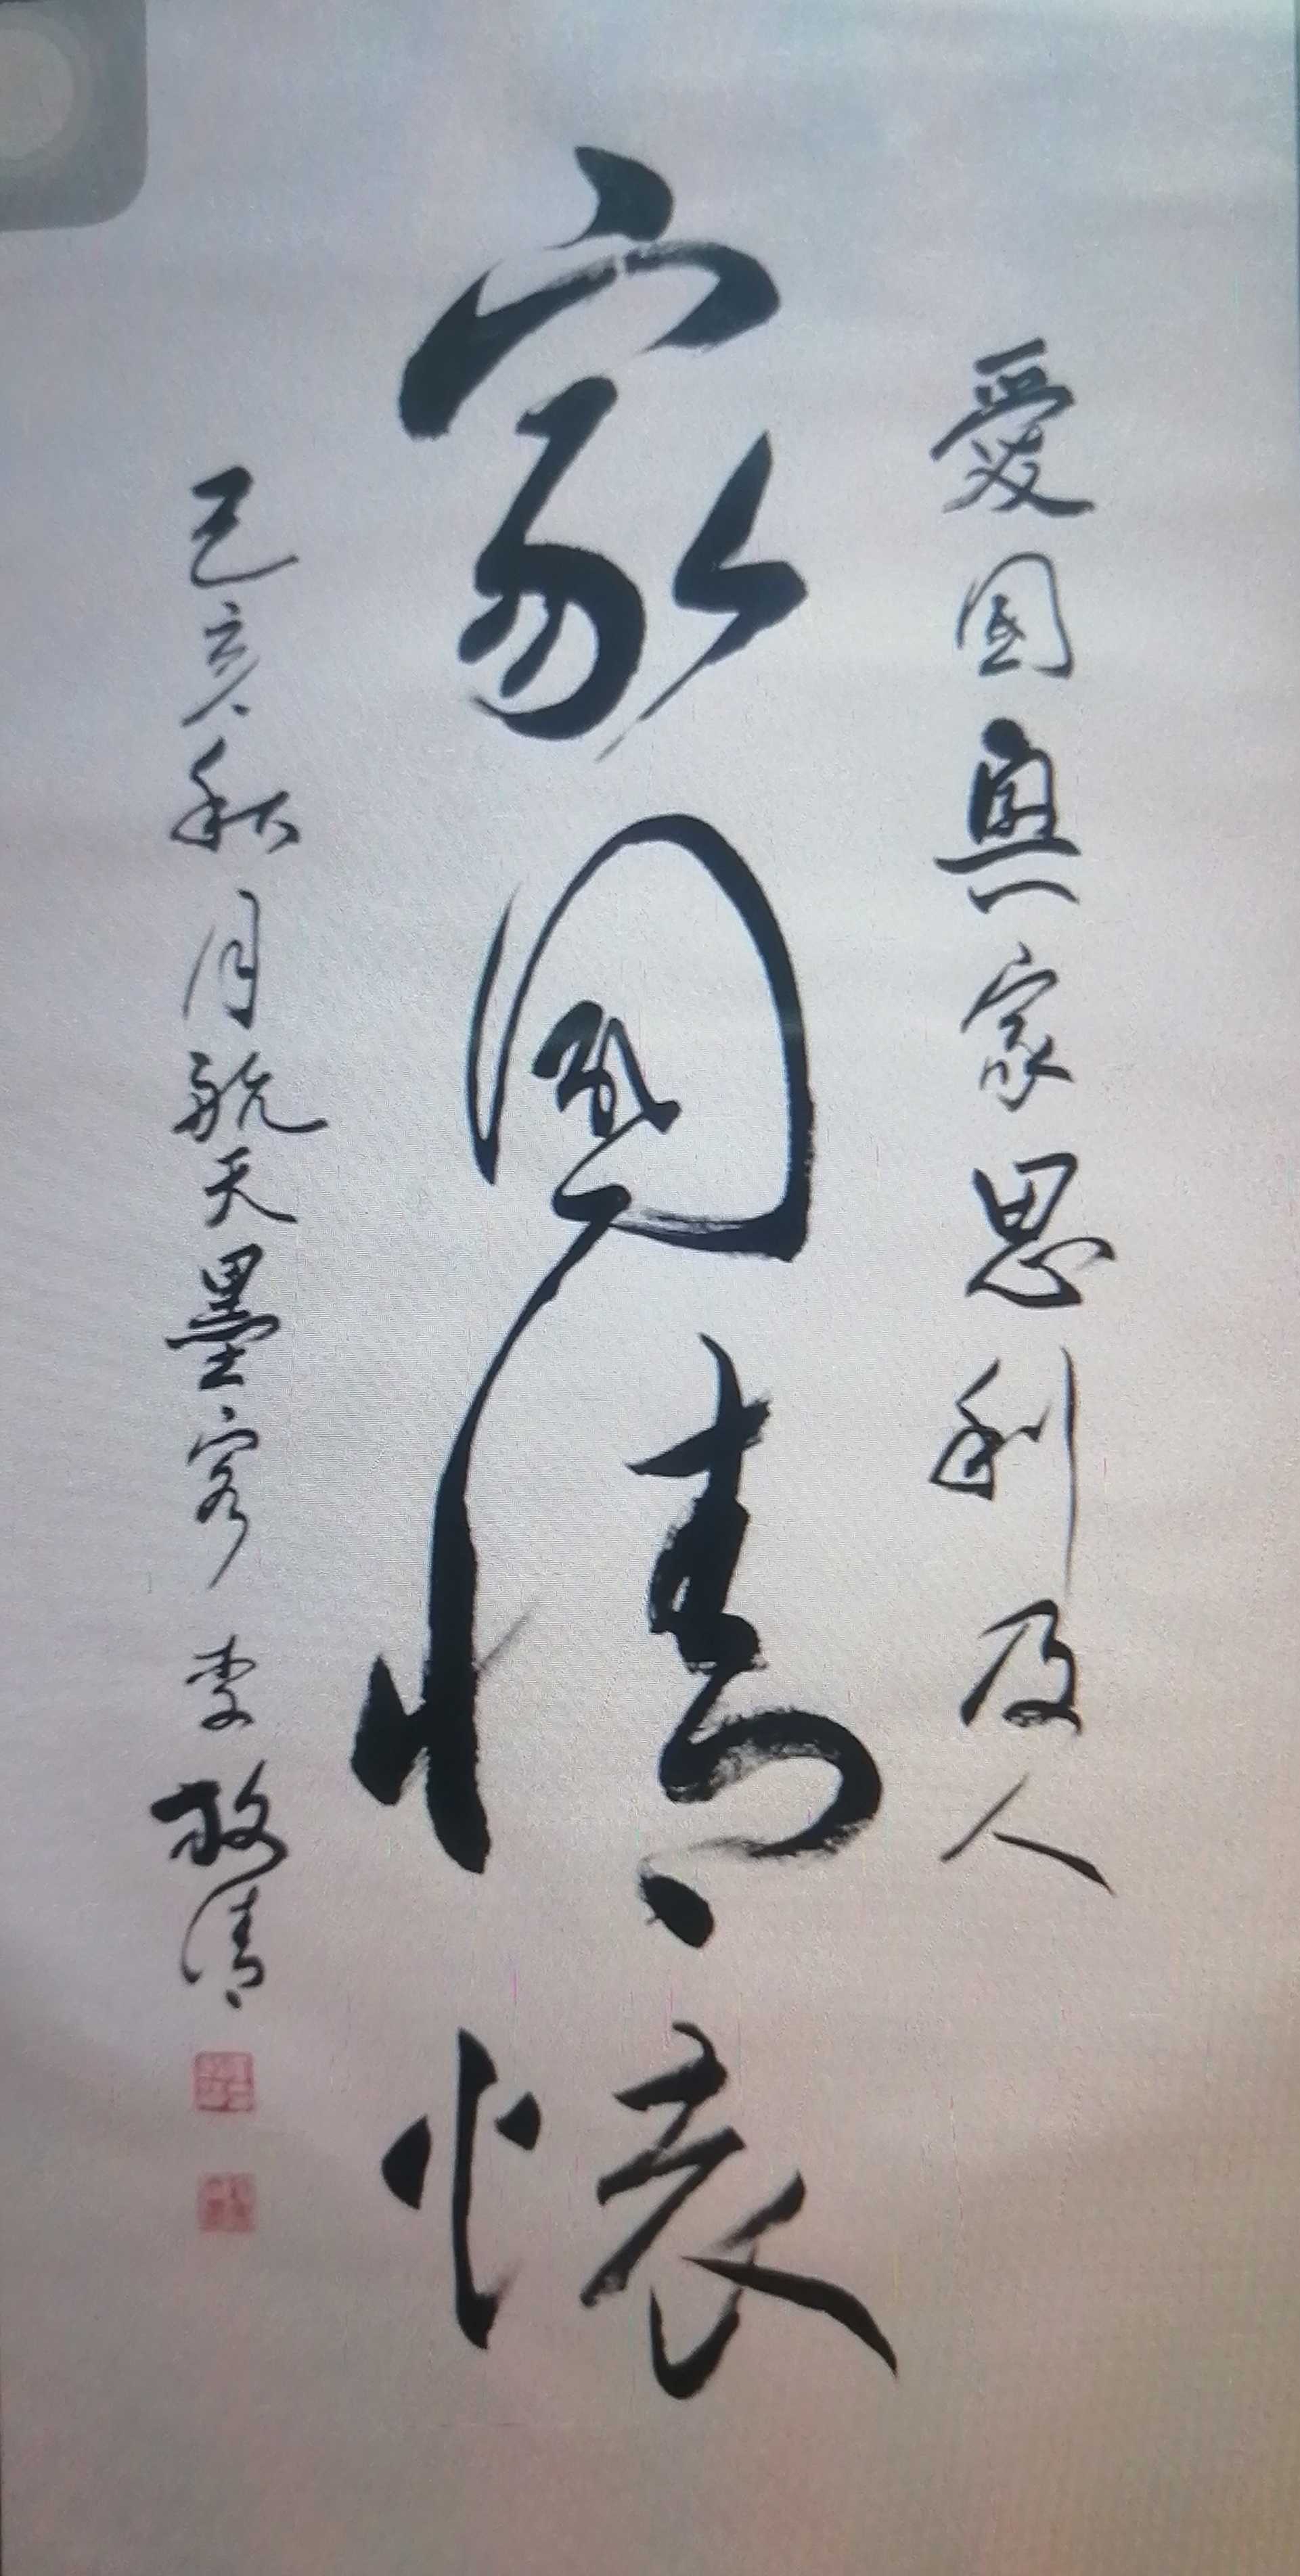 愛国與家思利及人
家國情懷
己亥秋月航天墨客李敬清